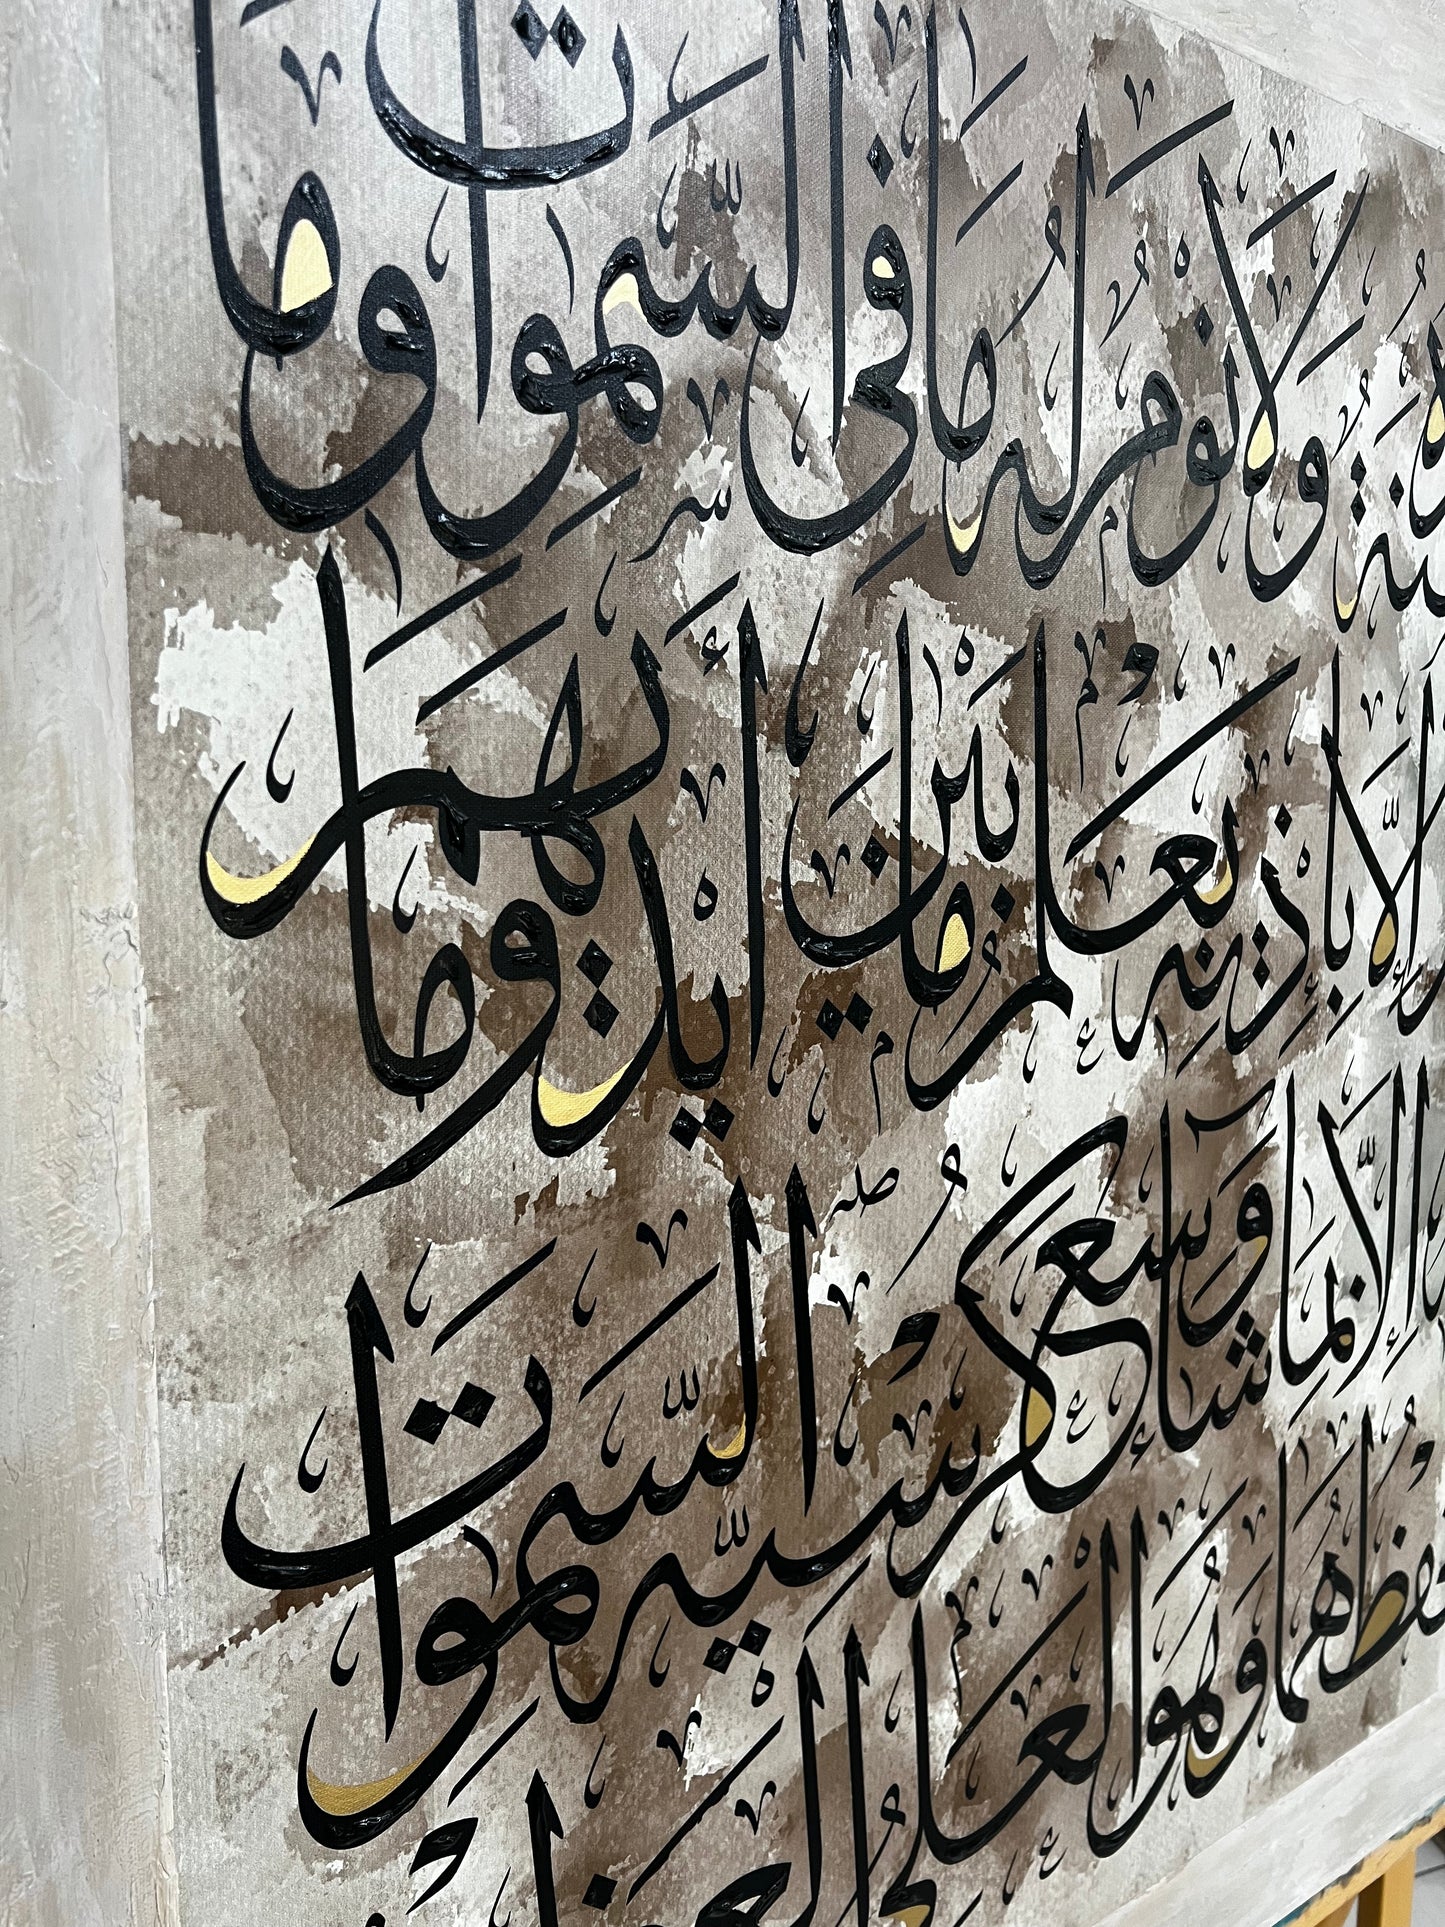 سِنَةٌ وَلَا نَوْمٌ لَهُ مَا فِي السَّمٰوَاتِ وَمَا
إِلَّا بِإِذْنِهِ يَعْلَمُ مَا بَيْنَ أَيْدِيهِمْ وَمَا
إِلَّا بِمَا شَآءَ وَسِعَ كُرْسِيُّهُ السَّمٰوَاتِ
حِفْظُهُمَا وَهُوَ الْعَلِيُّ